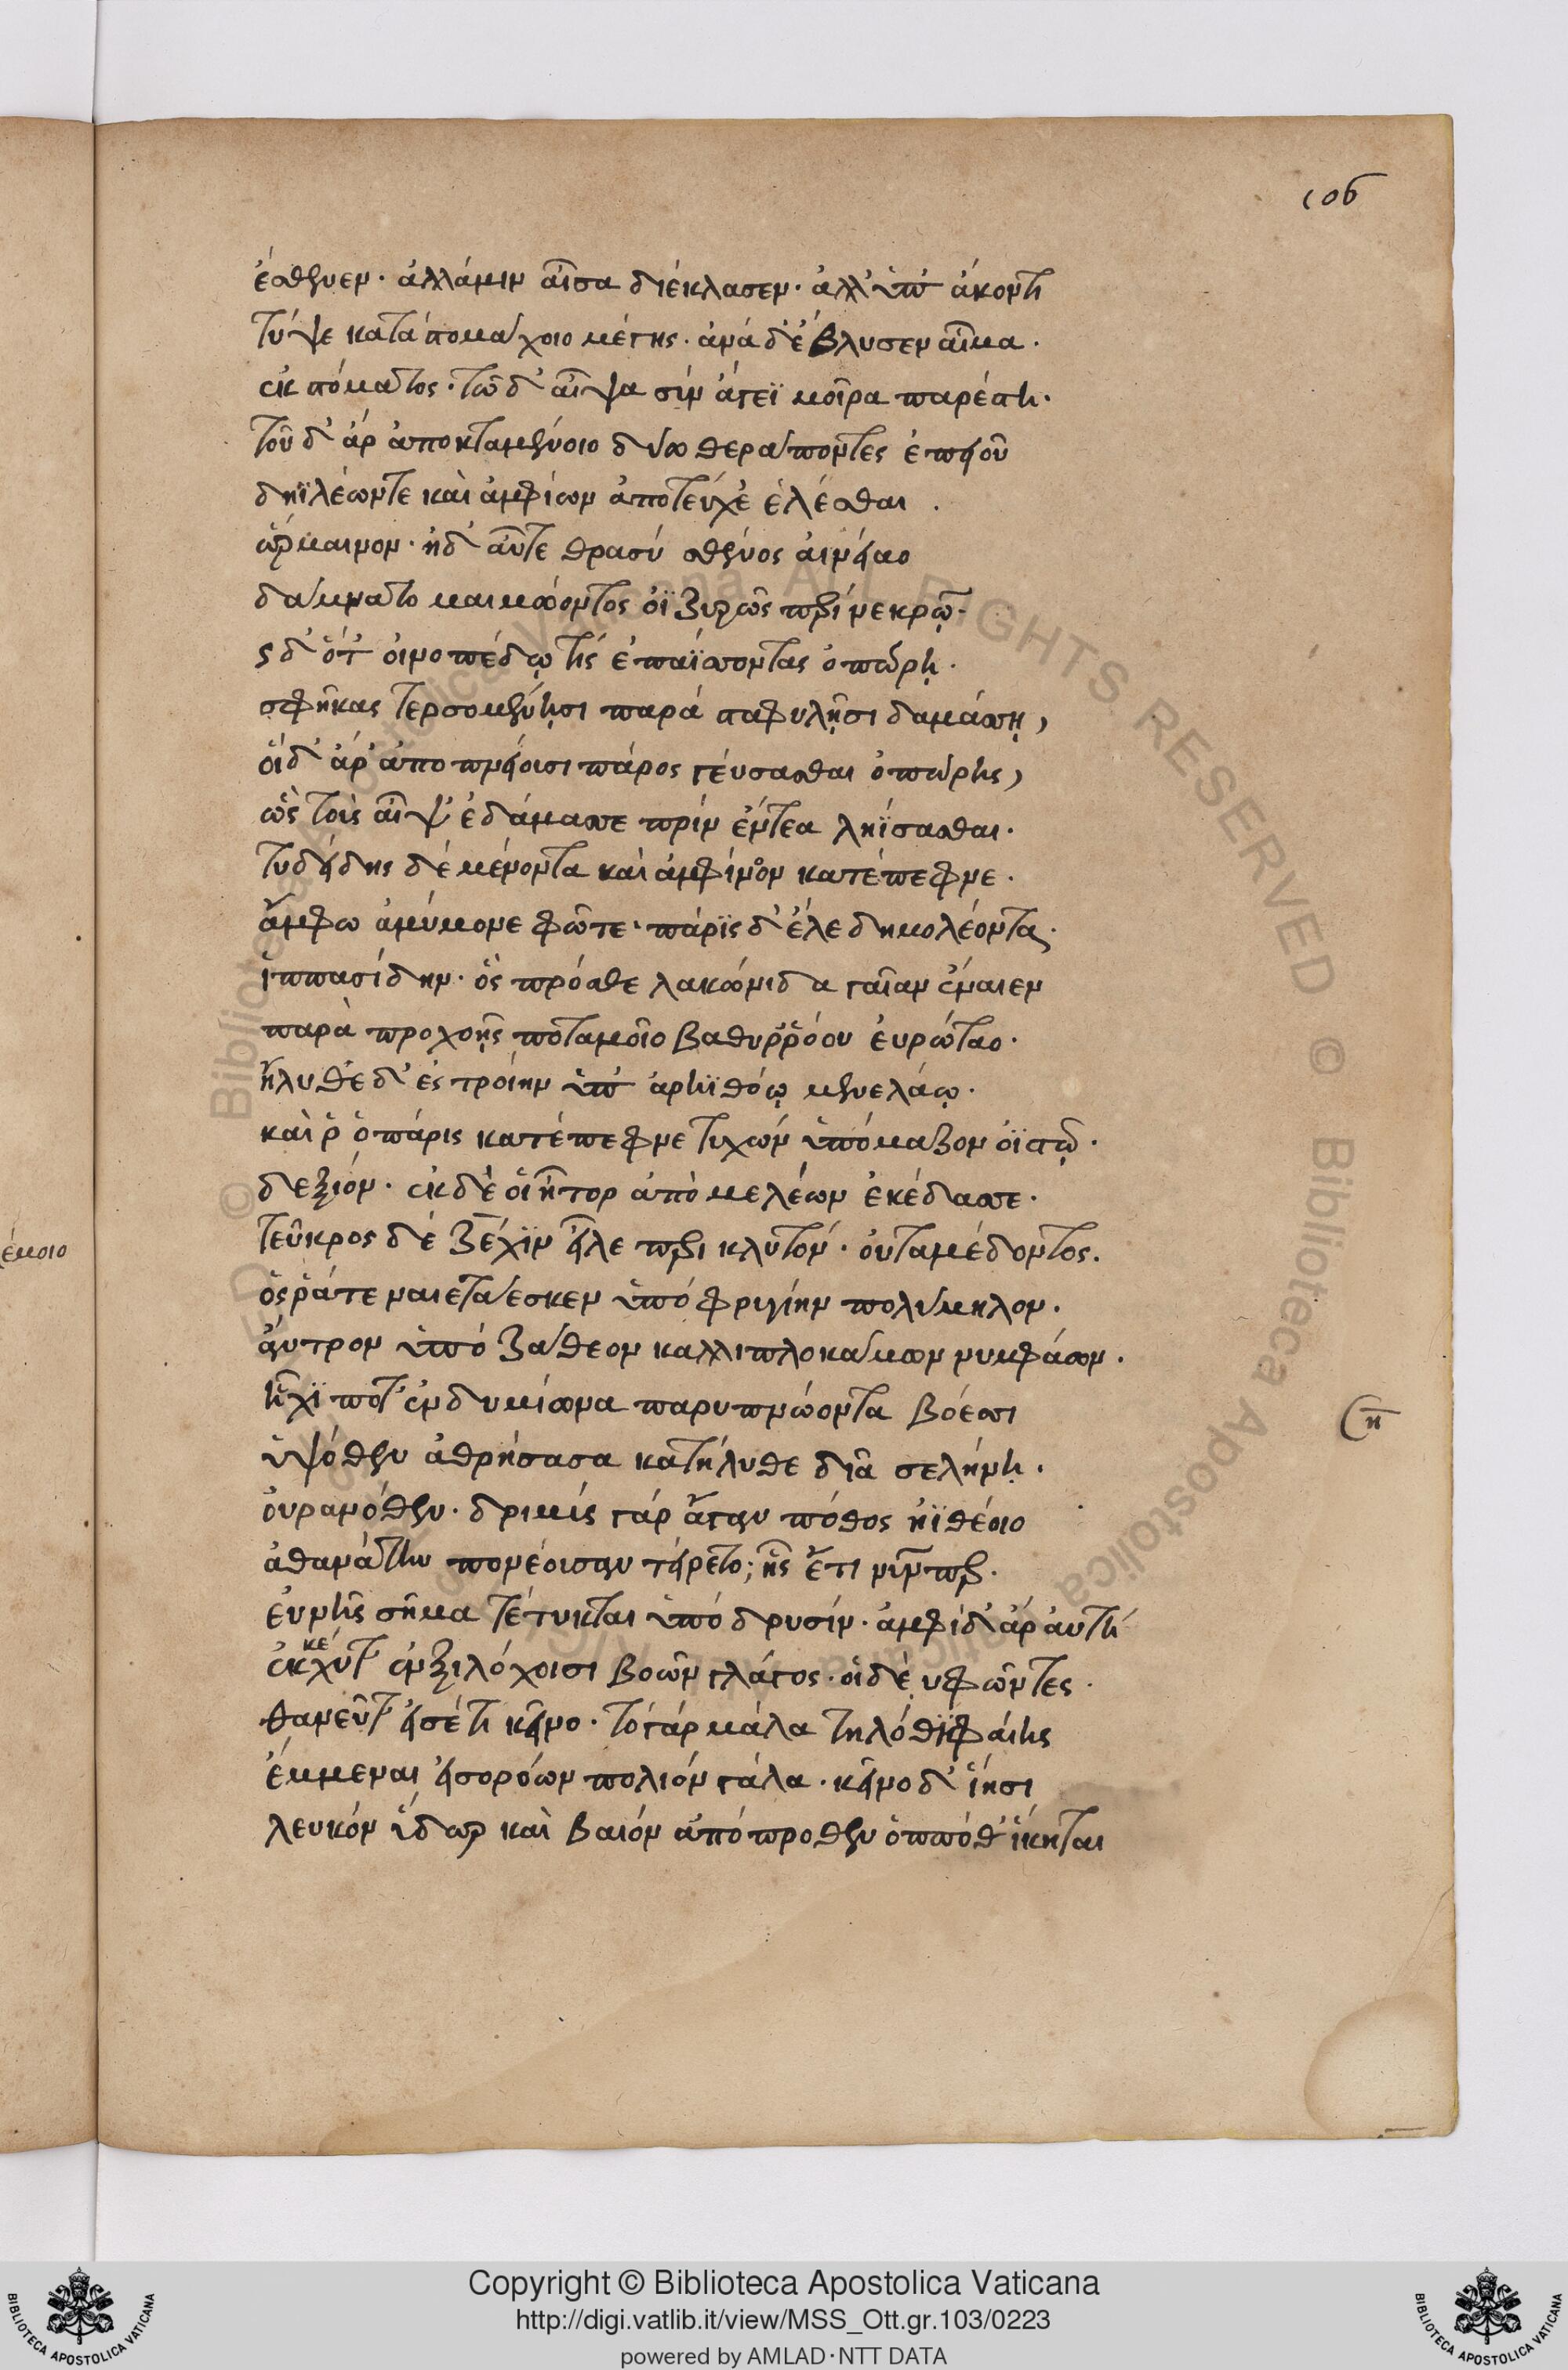 106
ἔσθενεν· ἀλλά μιν αἶσα διέκλασεν· ἀλλ' ὑπ' ἄκοντι
τύψε κατὰ στομάχοιο μέγης· ἀνὰ δ' ἔβλυσεν αἷμα·
ἐκ στόματος· τῶ δ' αἶψα σὺν ἄτεϊ μοῖρα παρέστη·
τοῦ δ' ἄρ ἀποκταμένοιο δύω θεράποντες ἐπειοῦ
δηϊλέωντε καὶ ἀμφίων ἀποτεύχε' ἑλέσθαι·
ὥρμαινον· ἠδ' αὖτε θρασὺ σθένος αἰνείαο
δάμνατο μαιμώοντος ὀϊζυρῶς περὶ νεκρῷ·
ς δ' ὅτ' οἰνοπέδῳ τίς ἐπαΐσσοντας ὀπώρῃ·
σφῆκας τερσομένῃσι παρὰ σταφυλῇσι δαμάσσῃ,
οἱ δ' ἄρ' ἀποπνείουσι πάρος γεύσασθαι ὀπώρης,
ὣς τοὺς αἶψ' ἐδάμασσε πρὶν ἔντεα ληΐσασθαι·
τυδείδης δὲ μένοντα καὶ ἀμφίνοον κατέπεφνε·
ἄμφω ἀμύμονε φῶτε· πάρις δ' ἕλε δημολέοντα·
ἱππασίδην· ὃς πρόσθε λακωνίδα γαῖαν ἔναιεν
παρὰ προχοῇς ποταμοῖο βαθυῤῥόου εὐρώταο·
ἤλυθε δ' ἐς τροίην ὑπ' ἀρηϊθόῳ μενελάῳ·
καὶ ῥ' ὁ πάρις κατέπεφνε τυχὼν ὑπὸ μαζὸν ὀϊστῷ·
δεξιόν· ἐκ δὲ οἱ ἦτορ ἀπὸ μελέων ἐκέδασσε·
τεῦκρος δὲ ζέχιν εἷλε περικλυτόν· οὐταμέδοντος·
ὅς ῥά τε ναιετάεσκεν ὑπὸ φρυγίην πολύμηλον·
ἄντρον ὑπὸ ζάθεον καλλιπλοκάμων νυμφάων·
ἧχί ποτ' ἐνδυμίωνα παρυπνώοντα βόεσσι
ὑψόθεν ἀθρήσασα κατήλυθε δῖα σελήνη·
οὐρανόθεν· δριμὺς γὰρ ἄγεν πόθος ἠϊθέοιο
ἀθανάτην πονέουσαν τείρετο; ἧς ἔτι νῦν περ·
εὐνῆς σῆμα τέτυκται ὑπὸ δρυσίν· ἀμφὶ δ' ἄρ αὐτῇ
ἐκκέχυτ' ἐν ξυλόχοισι βοῶν γλάγος· οἱ δέ νυ φῶντες·
θαμεῦντ' εἰσέτι κεῖνο· τὸ γὰρ μάλα τηλόθι φαίης
ἔμμεναι εἰσορόων πολιὸν γάλα· κεῖνο δ' ἵησι
λευκὸν ὕδωρ καὶ βαιὸν ἀπόπροθεν ὁππόθ' ἵκηται
έμοιο
Copyright © Biblioteca Apostolica Vaticana
http://digi.vatlib.it/view/MSS_Ott.gr.103/0223
powered by AMLAD·NTT DATA